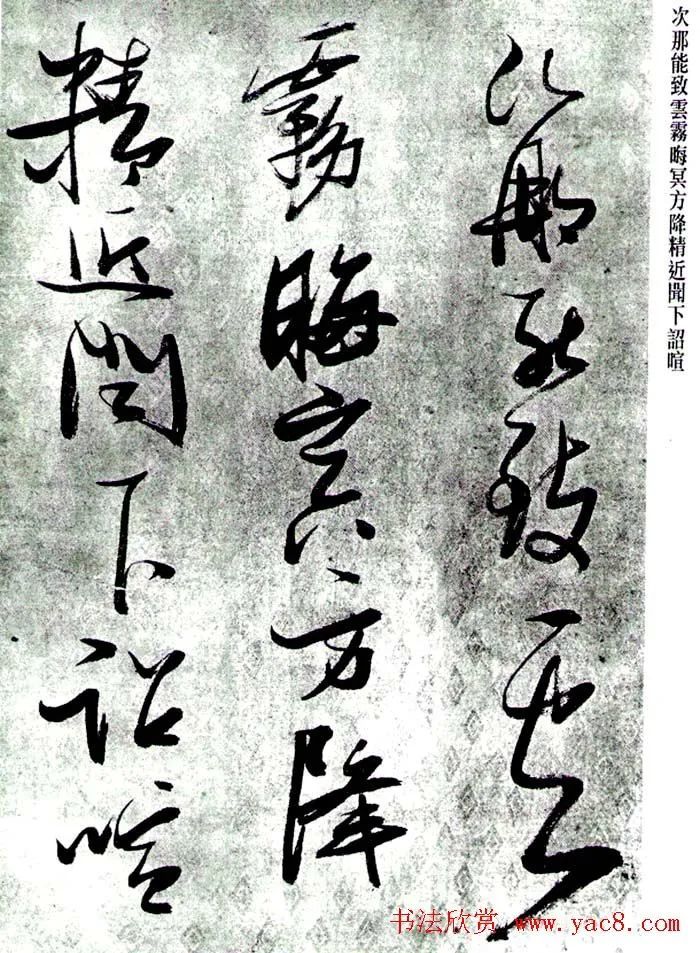 次那能致雲
霧晦冥方降
精近聞下詔喧
次那能致雲霧晦冥方降精近聞下詔喧
书法欣赏 www.yac8.com